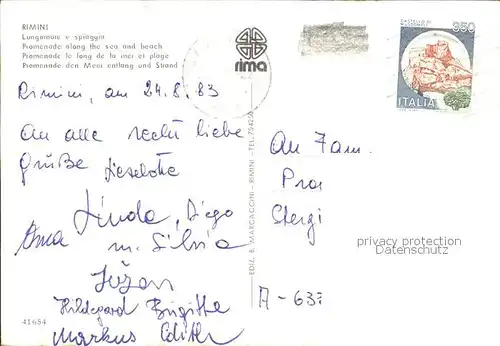 RIMINI
Lungomare e spiaggia
Promenade along the sea and beach
Promenade le long de la mer et plage
Promenade den Meer entlang und Strand
rima
CASTELLO DI
MUSSOMELI
350
ITALIA
Rimini, am 24.8.83
An alle recht liebe
Grüße Lieselotte
Linda, Diego
Oma u. Silvia
Hildegard Brigitte
Markus Edith
EDIZ. B. MARGACCINI - RIMINI - TEL.
41654
An Fam.
Stergi
A-633
privacy protection
Datenschutz